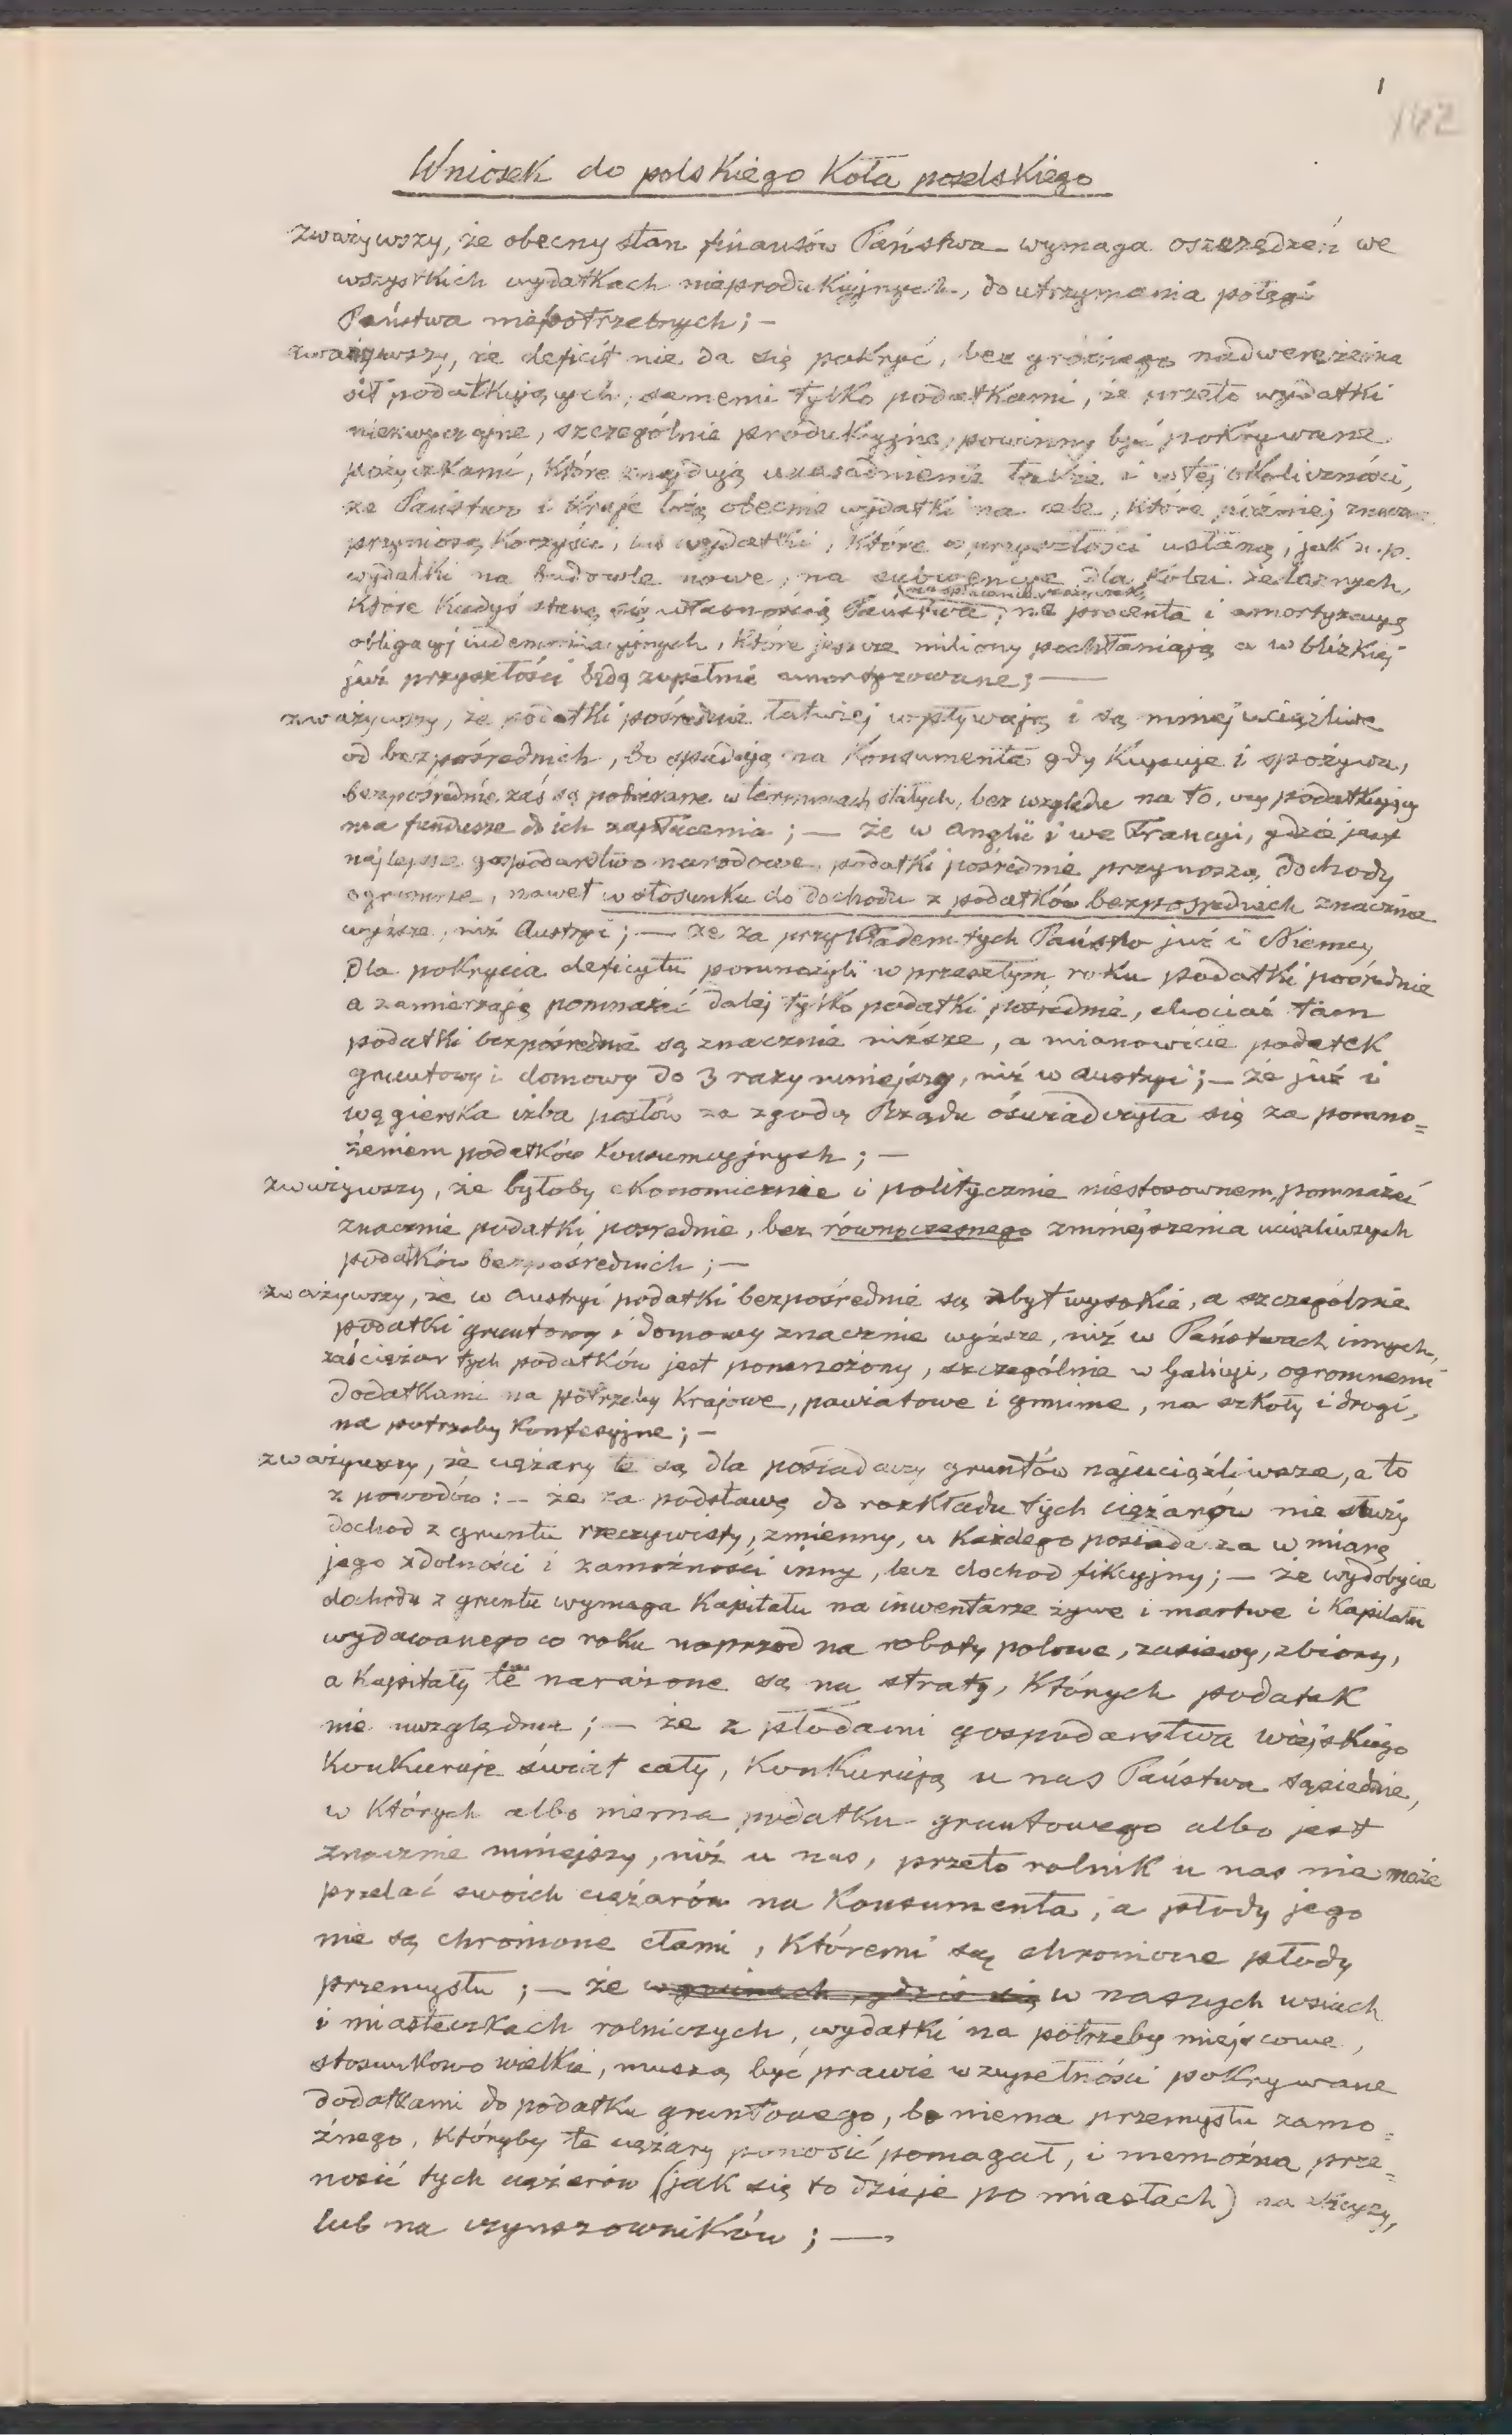 1
162
Wniosek do polskiego Koła poselskiego
zważywszy, że obecny stan finansów Państwa wymaga oszczędzeń we
wszystkich wydatkach nieprodukcyjnych, do utrzymania potęgi
Państwa niepotrzebnych; —
zważywszy, że deficit nie da się pokryć, bez groźnego nadwerężenia
sił podatkujących, samemi tylko podatkami, że przeto wydatki
niezwyczajne, szczególnie produkcyjne, powinny być pokrywane
pożyczkami, które znajdują uzasadnienie także i w tej okoliczności,
że Państwo i kraje łożą obecnie wydatki na cele, które później znaczne
przyniosą korzyści, lub wydatki, które w przyszłości ustaną, jak n.p.
wydatki na budowle nowe, na subwencye dla kolei żelaznych,
na spłacanie pożyczek,
które kiedyś staną się własnością Państwa, na procenta i amortyzacyą
obligacyj indemnizacyjnych, które jeszcze miliony pochłaniają a w blizkiej
już przyszłości będą zupełnie amortyzowane; —
zważywszy, że podatki pośrednie łatwiej wpływają i są mniej uciążliwe
od bezpośrednich, bo spadają na konsumenta gdy kupuje i spożywa,
bezpośrednie zaś są pobierane w terminach stałych, bez względu na to, czy podatkujący
ma fundusze do ich zapłacenia; — że w Anglii i we Francyi, gdzie jest
najlepsze gospodarstwo narodowe, podatki pośrednie przynoszą dochody
ogromne, nawet w stosunku do dochodu z podatków bezpośrednich znacznie
wyższe, niż Austryi; — że za przykładem tych Państw już i Niemcy
dla pokrycia deficytu pomnożyli w przeszłym roku podatki pośrednie
a zamierzają pomnażać dalej tylko podatki pośrednie, chociaż tam
podatki bezpośrednie są znacznie niższe, a mianowicie podatek
gruntowy i domowy do 3 razy mniejszy, niż w Austryi; — że już i
węgierska izba posłów za zgodą Rządu oświadczyła się za pomno=
żeniem podatków konsumcyjnych; —
zważywszy, że byłoby ekonomicznie i politycznie niestosownem, pomnażać
znacznie podatki pośrednie, bez równoczesnego zmniejszenia uciążliwszych
podatków bezpośrednich; —
zważywszy, że w Austryi podatki bezpośrednie są zbyt wysokie, a szczególnie
podatki gruntowy i domowy znacznie wyższe, niż w Państwach innych,
zaś ciężar tych podatków jest pomnożony, szczególnie w Galicyi, ogromnemi
dodatkami na potrzeby krajowe, powiatowe i gminne, na szkoły i drogi,
na potrzeby konfesyjne; —
zważywszy, że ciężary te są dla posiadaczy gruntów najuciążliwsze, a to
z powodów: — że za podstawę do rozkładu tych ciężarów nie służy
dochod z gruntu rzeczywisty, zmienny, u każdego posiadacza w miarę
jego zdolności i zamożności inny, lecz dochod fikcyjny; — że wydobycie
dochodu z gruntu wymaga kapitału na inwentarze żywe i martwe i kapitału
wydawanego co roku naprzod na roboty polowe, zasiewy, zbiory,
a kapitały te narażone są na straty, których podatek
nie uwzględnia; — że z płodami gospodarstwa wiejskiego
konkuruje świat cały, konkurują u nas Państwa sąsiednie,
w których albo niema podatku gruntowego albo jest
znacznie mniejszy, niż u nas, przeto rolnik u nas nie może
przelać swoich ciężarów na konsumenta, a płody jego
nie są chronione cłami, któremi są chronione płody
przemysłu; — że w gminach, gdzie się w naszych wsiach
i miasteczkach rolniczych, wydatki na potrzeby miejscowe,
stosunkowo wielkie, muszą być prawie w zupełności pokrywane
dodatkami do podatku gruntowego, bo niema przemysłu zamo=
żnego, któryby te ciężary ponosić pomagał, i niemożna prze=
nosić tych ciężarów (jak się to dzieje po miastach) na
lub na czynszowników; —